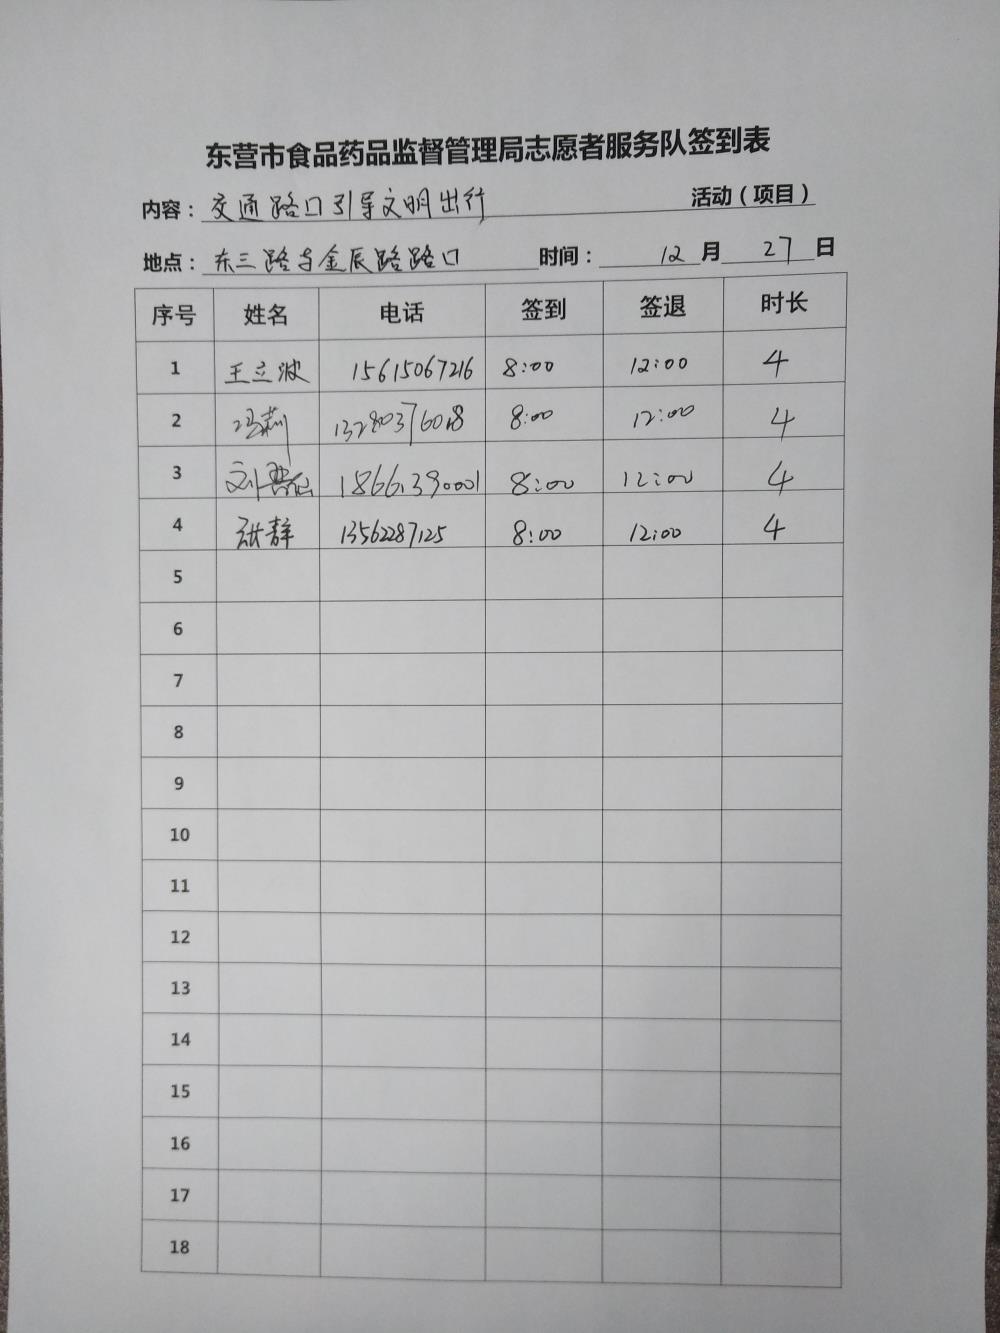 东营市食品药品监督管理局志愿者服务队签到表
内容：交通路口引导文明出行 活动（项目）
地点：东三路与金辰路路口 时间：12月27日
序号 姓名 电话 签到 签退 时长
1 王立波 15615067216 8:00 12:00 4
2 冯莉 8:00 12:00 4
3 刘 18661390001 8:00 12:00 4
4 张静 13562287125 8:00 12:00 4
5
6
7
8
9
10
11
12
13
14
15
16
17
18